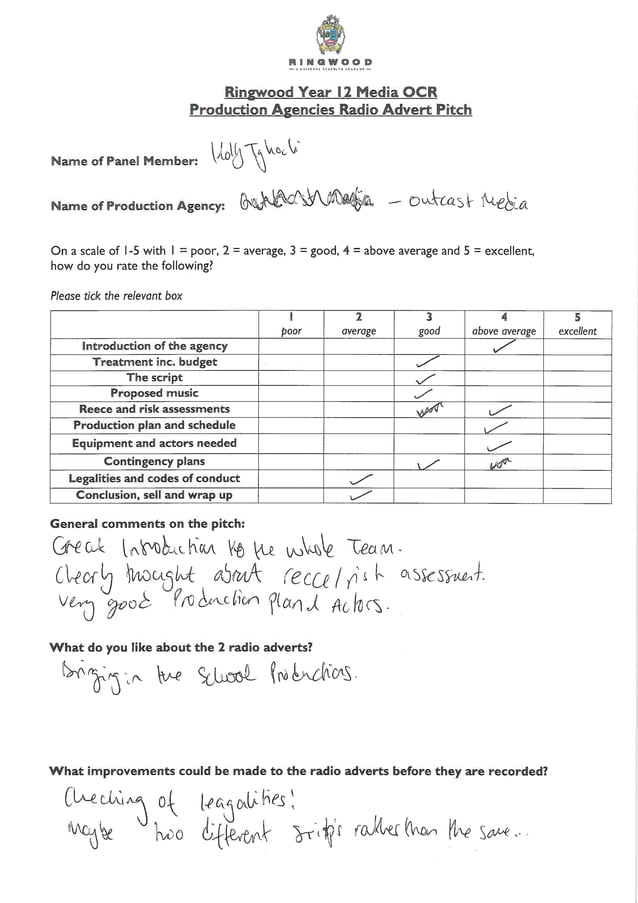 RINGWOOD
Ringwood Year 12 Media OCR
Production Agencies Radio Advert Pitch
Name of Panel Member: Holly
Name of Production Agency: - outcast Media
On a scale of 1-5 with 1 = poor, 2 = average, 3 = good, 4 = above average and 5 = excellent,
how do you rate the following?
Please tick the relevant box
1 2 3 4 5
poor average good above average excellent
Introduction of the agency ✓
Treatment inc. budget ✓
The script ✓
Proposed music ✓
Reece and risk assessments ✓
Production plan and schedule ✓
Equipment and actors needed ✓
Contingency plans ✓
Legalities and codes of conduct ✓
Conclusion, sell and wrap up ✓
General comments on the pitch:
Great Introduction to the whole Team.
Clearly thought about recce/risk assessment.
Very good Production plan & Actors.
What do you like about the 2 radio adverts?
Bringing in the School Productions.
What improvements could be made to the radio adverts before they are recorded?
Checking of leagalities!
Maybe two different rather than the same...